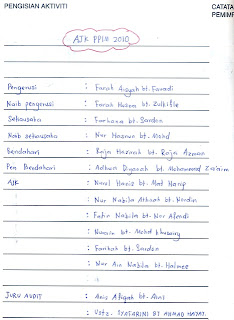 PENGISIAN AKTIVITI
CATATA
PEMIMP
AJK PPIM 2010
Pengerusi : Farah Aisyah bt. Fauadi
Naib pengerusi : Farah Husna bt. Zulkifle
Setiausaha : Farhana bt. Sardon
Naib setiausaha : Nur Hasnun bt. Mohd
Bendahari : Raja Hazirah bt. Raja Azman
Pen Bendahari : Adham Diyanah bt. Mohammad Zaimim
AJK : Nurul Hanis bt. Mat Hanip
: Nur Nabila Athirah bt. Nordin
: Fatin Nabila bt. Nor Afandi
: bt. Mohd
: Farihah bt. Sardon
: Nur Ain Nabila bt. Halmee
:
JURU AUDIT : Anis Afiqah bt. Anis
: Ustz. SYAFARINI BT AHMAD HAYAT.